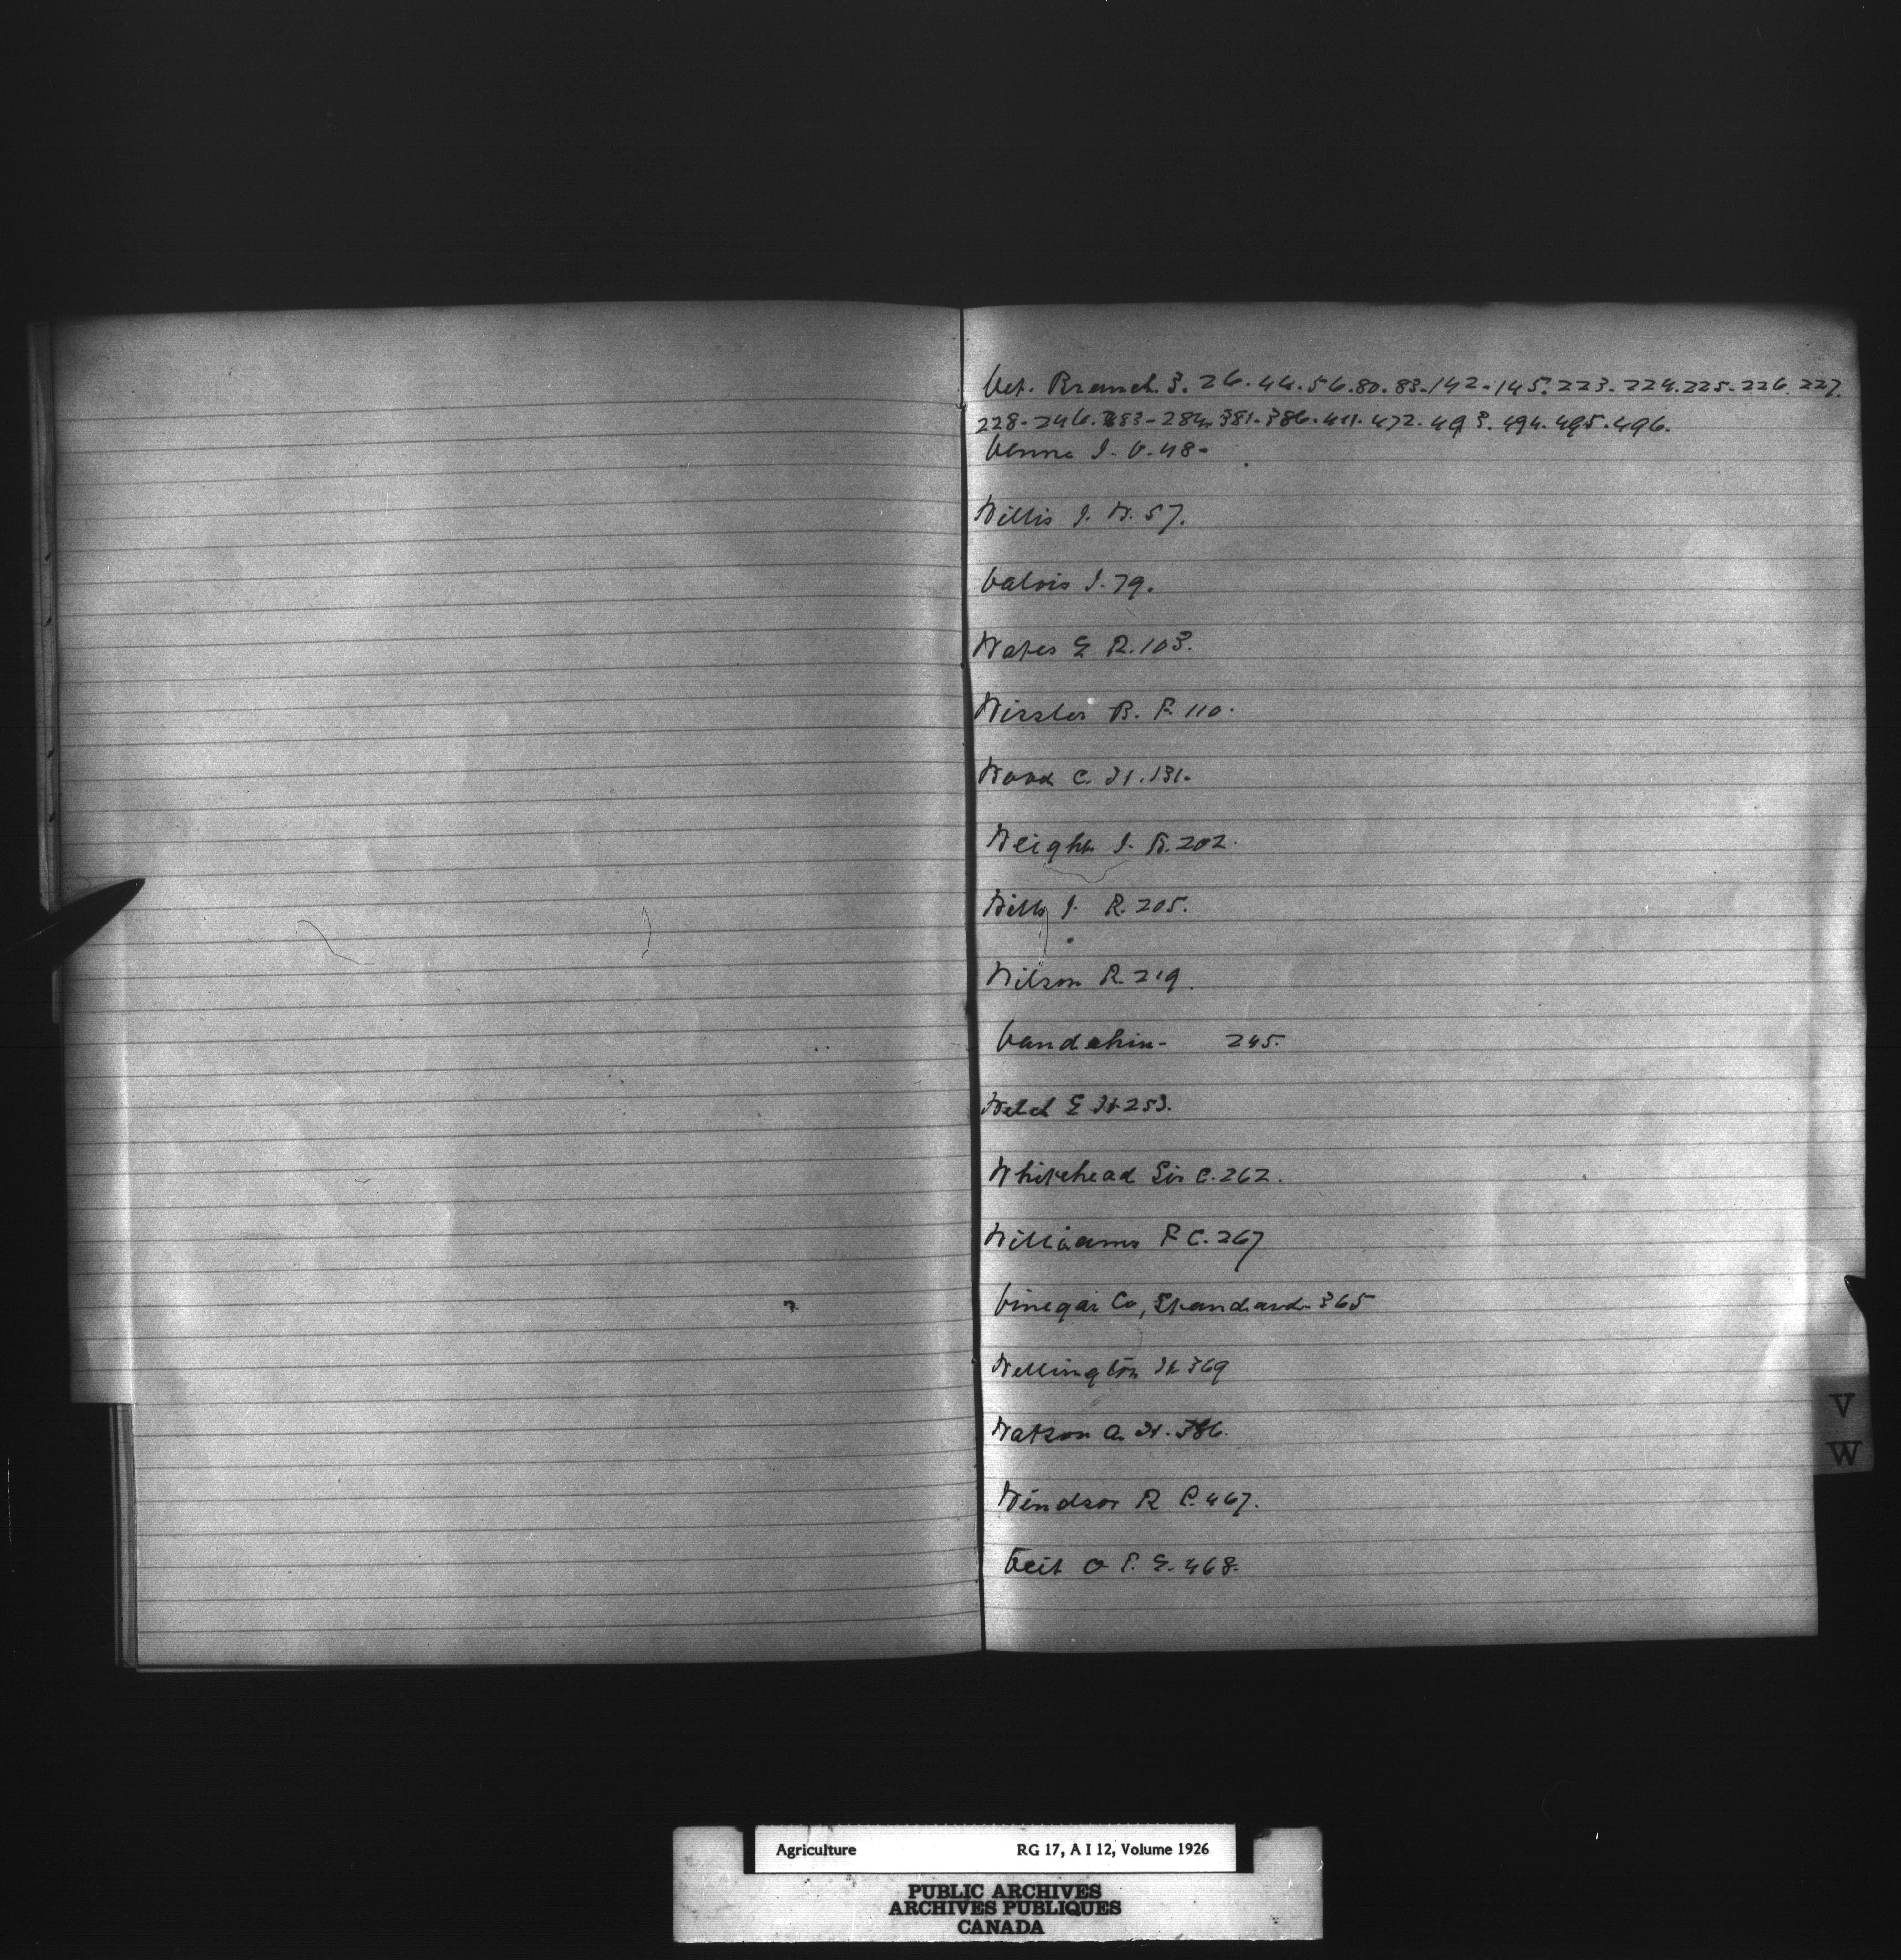 Vet. Branch. 3. 26. 44. 56. 80. 83. 142. 145. 223. 224. 225. 226. 227.
228. 246. 283. 284. 381. 386. 411. 472. 493. 494. 495. 496.
Venne J. V. 48.
Willis J. W. 57.
Valois J. 79.
Wates E R. 103.
Wissler B. F. 110.
Wood C. H. 131.
Weight J. B. 202.
Wills J. R. 205.
Wilson R. 219.
245.
Welch E H. 253.
Whitehead Sir C. 262.
Williams F C. 267
Vinegar Co, Standard 365
Wellington H 369
Watson A. H. 386.
Windsor R P. 467.
Veit O F. E. 468.
V
W
Agriculture RG 17, A I 12, Volume 1926
PUBLIC ARCHIVES
ARCHIVES PUBLIQUES
CANADA